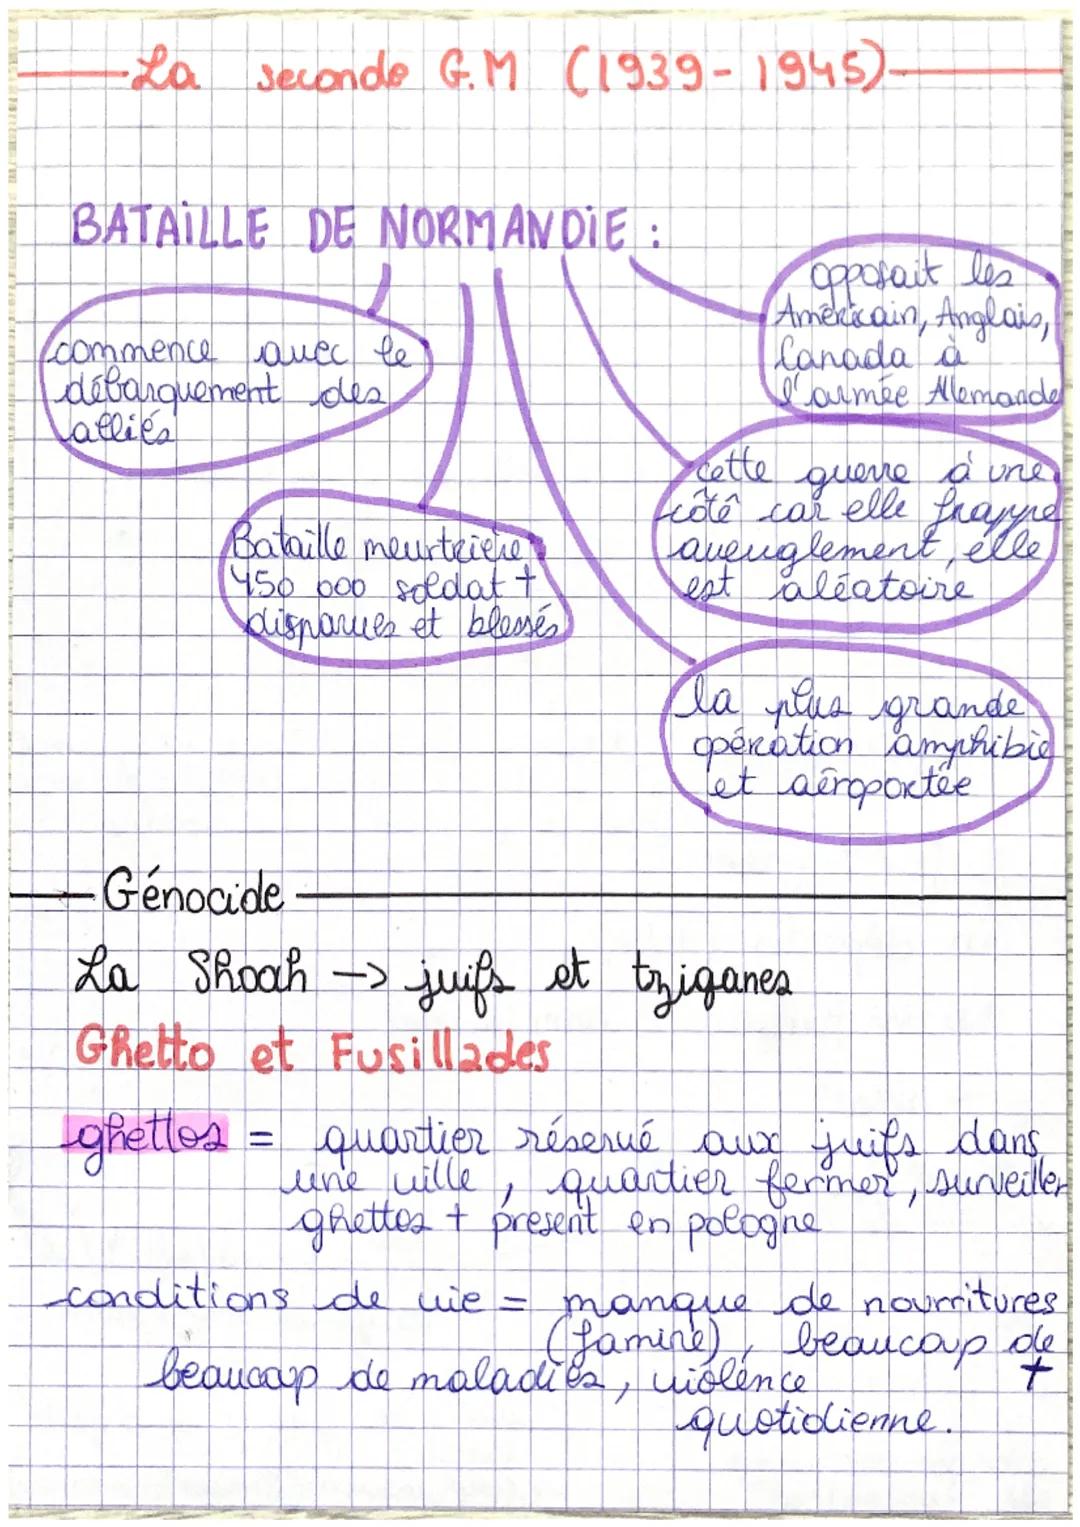 La seconde G.M (1939-1945)
BATAILLE DE NORMANDIE :
opposait les
Américain, Anglais,
Canada à
l'armée Allemande
commence avec le
débarquement des
alliés
cette guerre à une
côté car elle frappe
aveuglement, elle
est aléatoire
Bataille meurtrière,
450 000 soldat +
disparues et blessés
la plus grande
opération amphibie
et aéroportée
Génocide
La Shoah -> juifs et tziganes
Ghetto et Fusillades
ghettos = quartier réservé aux juifs dans
une ville, quartier fermer, surveiller
ghettos + présent en pologne
conditions de vie = manque de nourritures
(famine), beaucoup de +
beaucoup de maladies, violence
quotidienne.